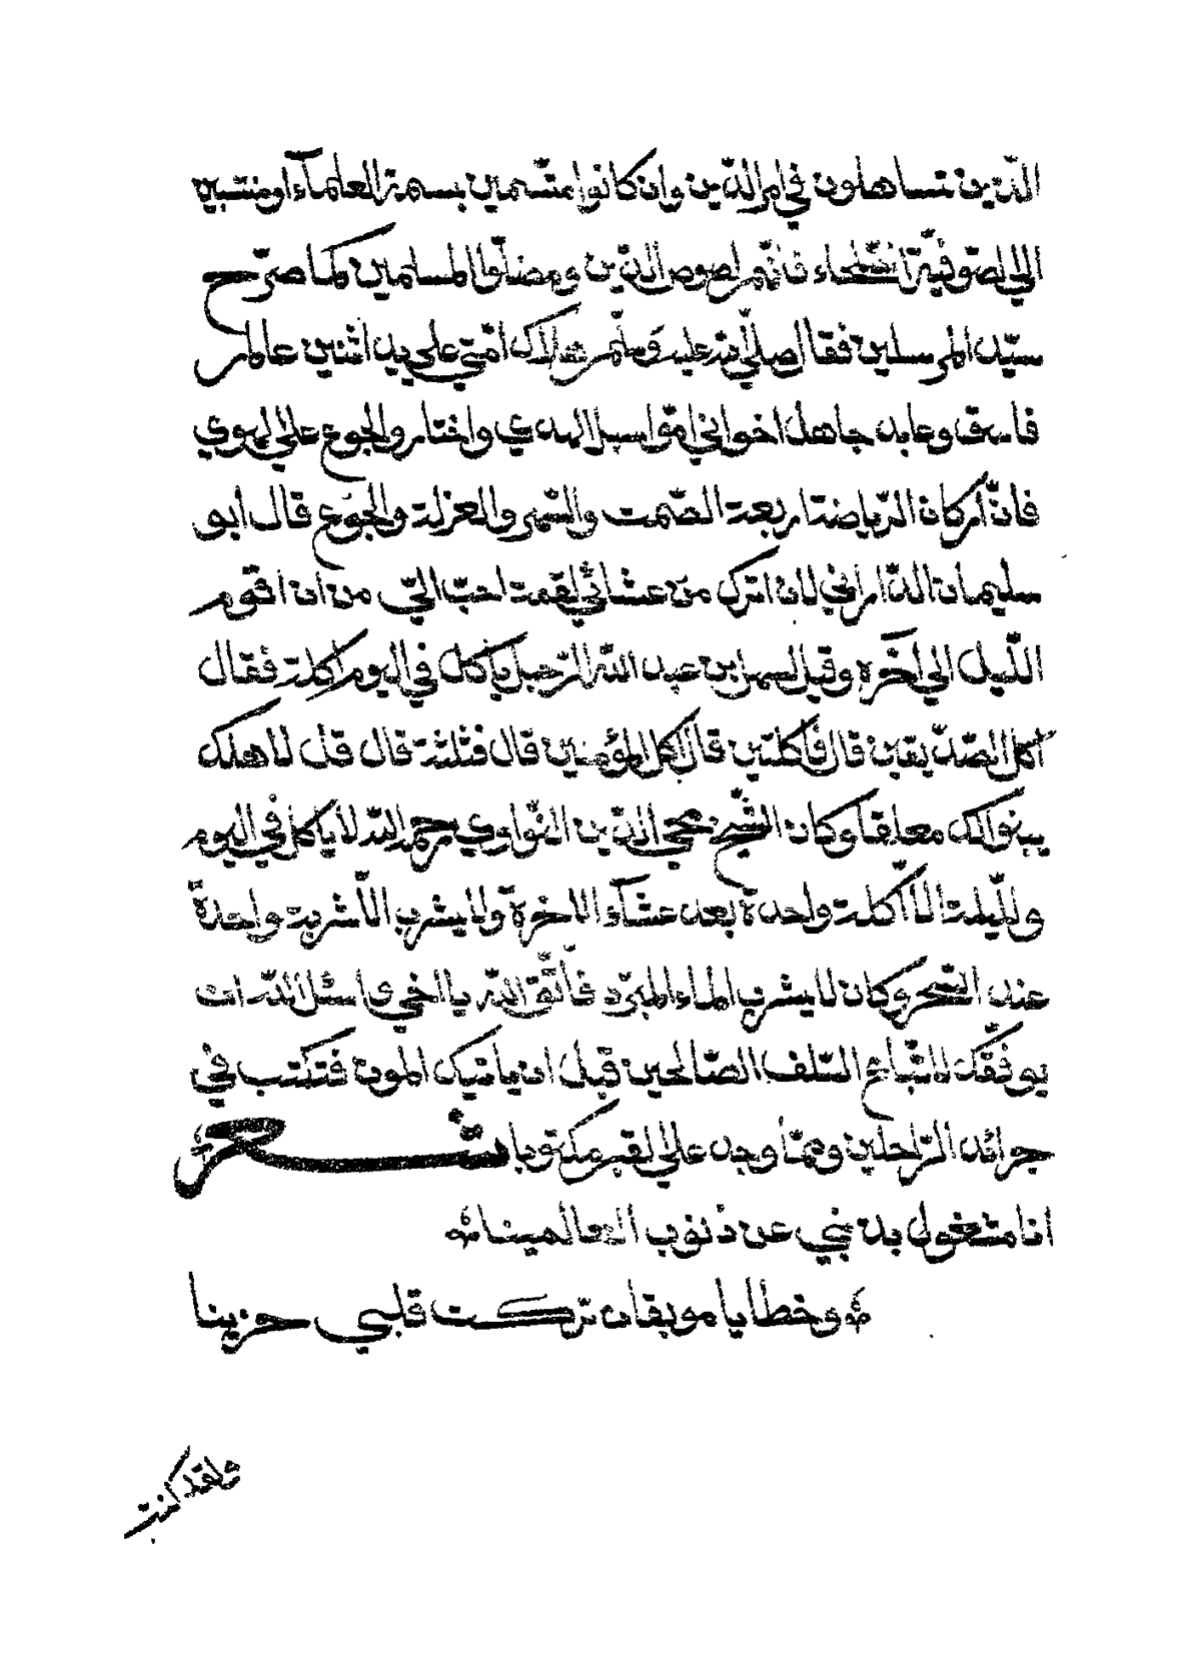 الذين تساهلون في امر الدّين وان كانوا متّسمين بسمة العلمآء او منتسبين
الى الصّوفيّة الصّلحاء فانّهم لصوص الدّين ومضلّوا المسلمين كما صرّح
سيّد المرسلين فقال صلّى الله عليه وسلّم هلاك امّتي على يد اثنين عالم
فاسق وعابد جاهل اخواني امّوا سبل الهدي واختاروا الجوع علي الهوي
فانّ أركان الرّياضة اربعة الصّمت والسّهر والعزلة والجوع قال أبو
سليمان الدّاراني لان اترك من عشائي لقمة احبّ اليّ من ان اقوم
اللّيل الي آخره وقيل لسهل بن عبد الله الرّجل يأكل في اليوم اكلة فقال
اكل الصّدّيقين قال فأكلتين قال اكل المؤمنين قال فثلثة قال قل لاهلك
يبنوا لك معلفا وكان الشّيخ محيي الدّين النّواوي رحمه الله لا ياكل في اليوم
واللّيلة الّا أكلة واحدة بعد عشآء الاخرة ولا يشرب الّا شربة واحدة
عند السّحر وكان لا يشرب الماء المبرّد فأتّق الله يا اخي واسئل الله ان
يوفّقك لاتّباع السّلف الصّالحين قبل ان يأتيك الموت فتكتب في
جرائد الرّاحلين وممّا وجد علي القبر مكتوبا شعر
انا مشغول بذنبي عن ذنوب العالمينا
وخطايا موبقات تركت قلبي حزينا
ولقد كنت